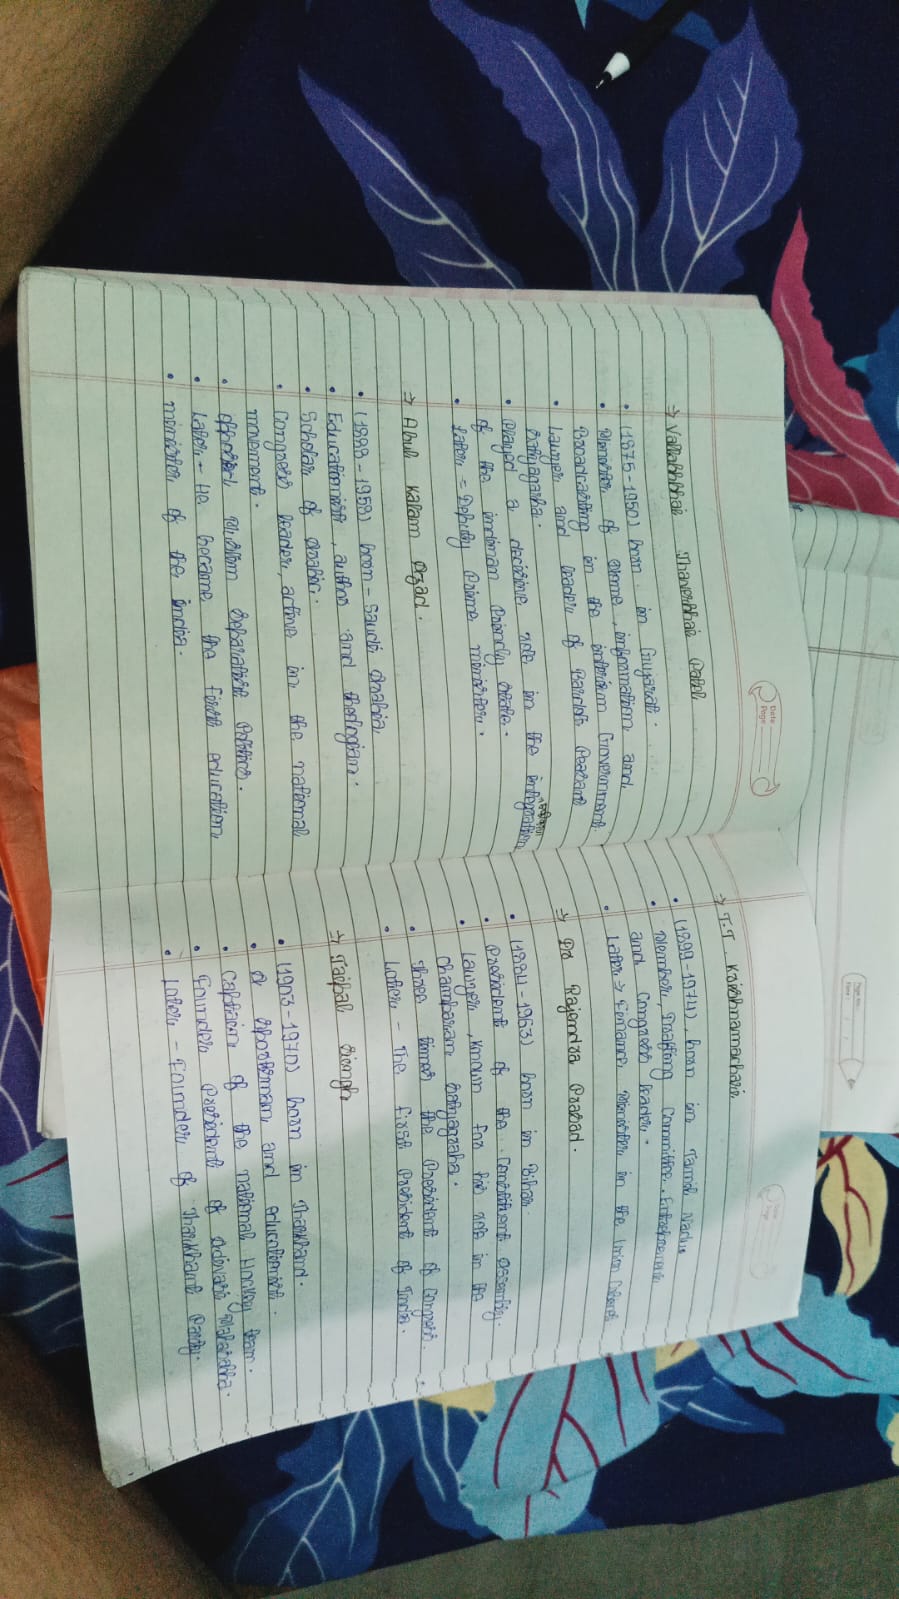 Date
Page
→ Vallabhbhai Jhaverbhai Patel
• (1875-1950) born in Gujarat.
• Minister of Home, information and
Broadcasting in the interim Government.
• Lawyer and leader of Bardoli Peasant
Satyagarha.
• Played a decisive role in the integration
of the indian Princly state.
• later = Deputy Prime minister.
→ Abul Kalam Azad.
• (1888-1958) born - Saudi Arabia,
• Educationist, author and theologian.
• Scholar of Arabic.
• Congess leader, active in the national
movement.
• Opposed Muslim separatist Politics.
• Later - He became the first education
• meinister of the india.
→ T.T. Krishnamachari
• (1899-1974), born in Tamil Nadu
• Member, Drafting Committee, Entrepreneur
and Congress leader.
• Later → Finance Minister in the Union Cabinet
→ Dr Rajendra Prasad.
• (1884-1963) born in Bihar.
• President of the Constituent Assembly.
• Lawyer, known for his role in the
champaran satyagraha.
• Three times the President of Congess.
• Later - The first President of India.
→ Jaipal Singh
• (1903-1970) born in Jharkhand.
• A sportsman and educationist.
• Captain of the national Hockey team.
• Founder President of Adivasi Mahasabha.
• Later - Founder of Jharkhand Party.